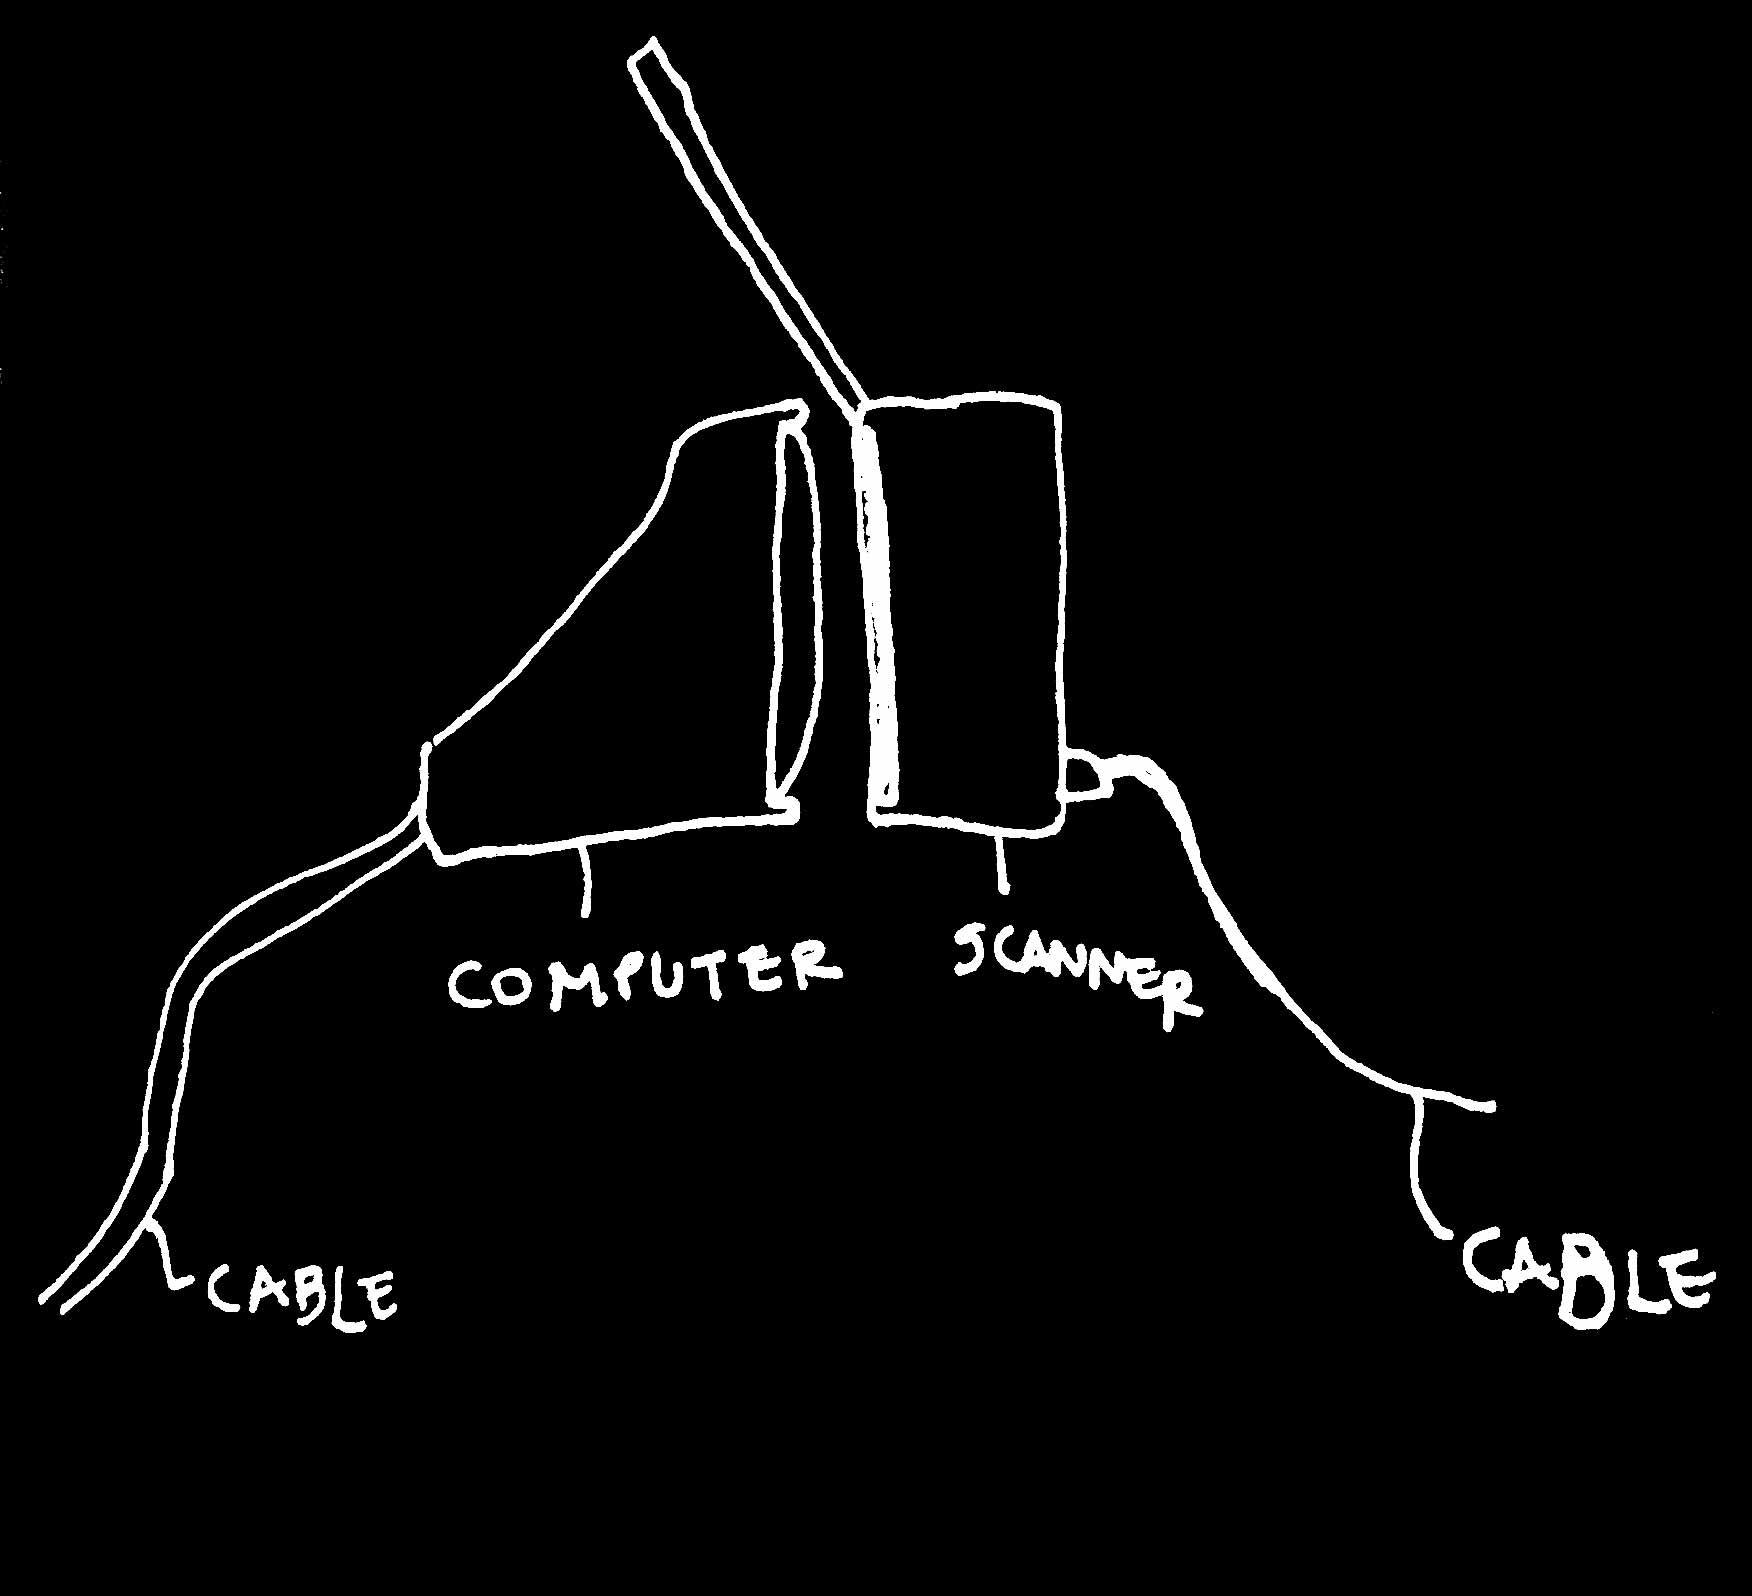 COMPUTER
SCANNER
CABLE
CABLE